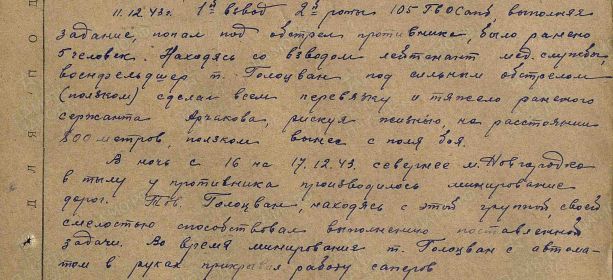 11.12.43г. 1й взвод 2й роты 105 ГвОСапб выполняя
задание, попал под обстрел противника, было ранено
5 человек. Находясь со взводом лейтенант мед. службы,
военфельдшер т. Голоцван под сильным обстрелом
(ползком) сделал всем перевязку и тяжело раненого
сержанта Арчакова, рискуя жизнью, на расстоянии
800 метров, ползком вынес с поля боя.
В ночь с 16 на 17.12.43. севернее м. Новгородка
в тылу у противника производилось минирование
дорог. Тов. Голоцван, находясь с этой группой, своей
смелостью способствовал выполнению поставленной
задачи. Во время минирование т. Голоцван с автома-
том в руках прикрывал работу саперов
ДЛЯ ПОД